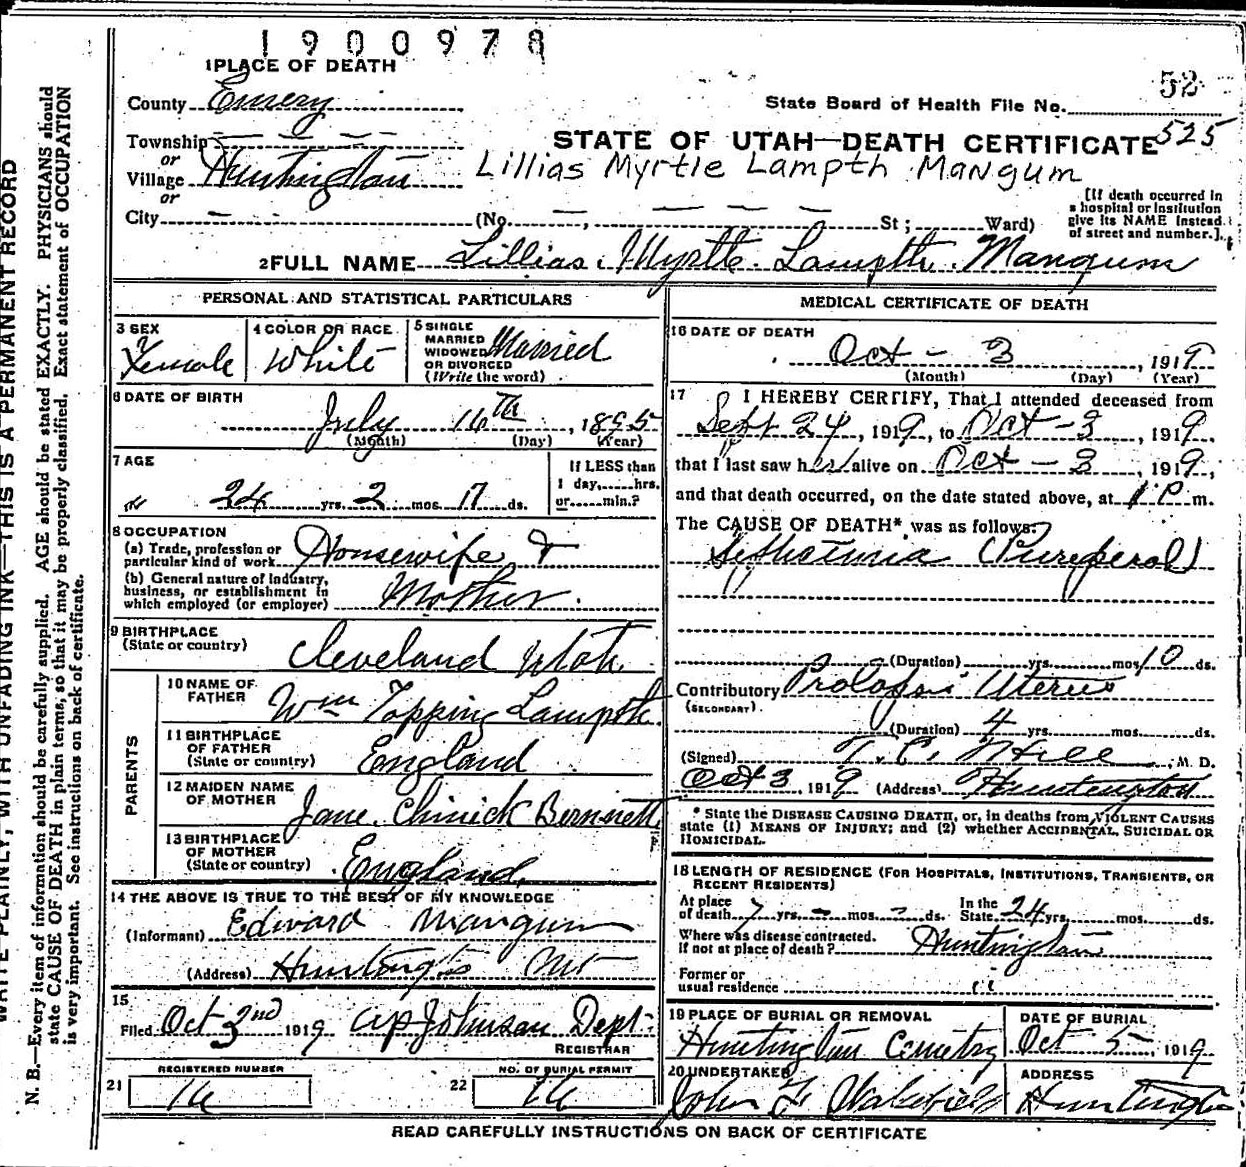 1900978
1 PLACE OF DEATH
52
County Emery
State Board of Health File No.
Township
or
STATE OF UTAH—DEATH CERTIFICATE 525
Village Huntington
Lillias Myrtle Lampth Mangum
or
City (No. , St ; Ward)
[If death occurred in
a hospital or institution
give its NAME instead
of street and number.]
2 FULL NAME Lillias Myrtle Lampth Mangum
PERSONAL AND STATISTICAL PARTICULARS
3 SEX
Female
4 COLOR OR RACE
White
5 SINGLE
MARRIED
WIDOWED
OR DIVORCED
(Write the word)
Married
6 DATE OF BIRTH
July 16th, 1895
(Month) (Day) (Year)
7 AGE
24 yrs. 2 mos. 17 ds.
If LESS than
1 day, hrs.
or min.?
8 OCCUPATION
(a) Trade, profession or
particular kind of work Housewife &
(b) General nature of Industry,
business, or establishment in
which employed (or employer) Mother.
9 BIRTHPLACE
(State or country) Cleveland Utah.
PARENTS
10 NAME OF
FATHER Wm Topping Lampth
11 BIRTHPLACE
OF FATHER
(State or country) England
12 MAIDEN NAME
OF MOTHER Jane
13 BIRTHPLACE
OF MOTHER
(State or country) England
14 THE ABOVE IS TRUE TO THE BEST OF MY KNOWLEDGE
(Informant) Edward Mangum
(Address) Huntington
15
Filed Oct 3nd 1919 Johnson Dept.
REGISTRAR
21 REGISTERED NUMBER
16
22 NO. OF BURIAL PERMIT
16
MEDICAL CERTIFICATE OF DEATH
16 DATE OF DEATH
Oct - 3, 1919
(Month) (Day) (Year)
17 I HEREBY CERTIFY, That I attended deceased from
Sept 24, 1919, to Oct - 3, 1919.
that I last saw her alive on Oct - 3, 1919,
and that death occurred, on the date stated above, at 1 P m.
The CAUSE OF DEATH* was as follows:
(Pureperal)
(Duration) yrs. mos 10 ds.
Contributory Prolapsi Uterus
(SECONDARY)
(Duration) 4 yrs. mos. ds.
(Signed) T. C. Hill, M. D.
Oct 3 1919 (Address) Huntington
* State the DISEASE CAUSING DEATH, or, in deaths from VIOLENT CAUSES
state (1) MEANS OF INJURY; and (2) whether ACCIDENTAL, SUICIDAL OR
HOMICIDAL.
18 LENGTH OF RESIDENCE (FOR HOSPITALS, INSTITUTIONS, TRANSIENTS, OR
RECENT RESIDENTS)
At place
of death 7 yrs. - mos. ds.
In the
State 24 yrs. mos. ds.
Where was disease contracted.
If not at place of death? Huntington
Former or
usual residence "
19 PLACE OF BURIAL OR REMOVAL
Huntington Cemetry
DATE OF BURIAL
Oct 5, 1919
20 UNDERTAKER
John F Wakefield
ADDRESS
Huntington
READ CAREFULLY INSTRUCTIONS ON BACK OF CERTIFICATE
WRITE PLAINLY, WITH UNFADING INK—THIS IS A PERMANENT RECORD
N. B.—Every item of information should be carefully supplied. AGE should be stated EXACTLY. PHYSICIANS should
state CAUSE OF DEATH in plain terms, so that it may be properly classified. Exact statement of OCCUPATION
is very important. See instructions on back of certificate.